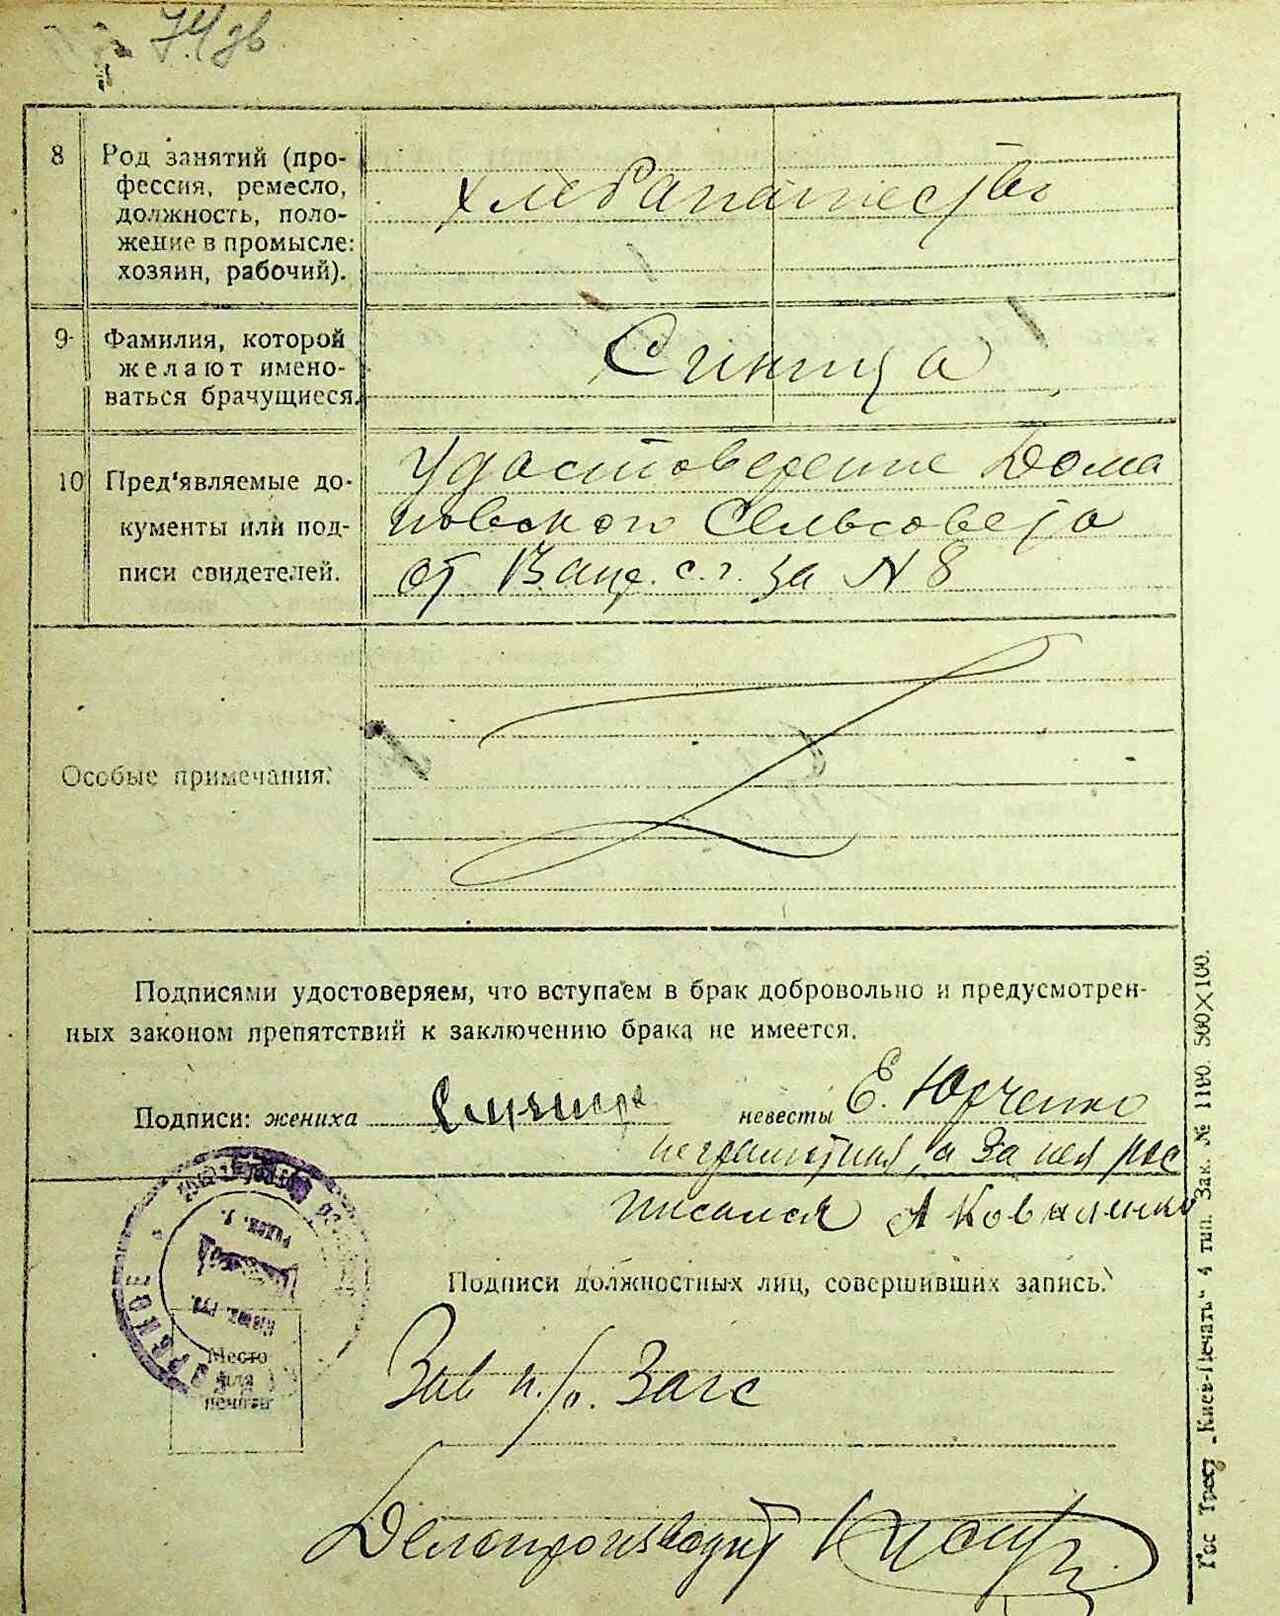 74
8 Род занятий (про-
фессия, ремесло,
должность, поло-
жение в промысле:
хозяин, рабочий).
хлебапашество
9 Фамилия, которой
желают имено-
ваться брачущиеся.
Синица
10 Пред'являемые до-
кументы или под-
писи свидетелей.
Удостоверение Дома
новского Сельсовета
от с. г. за N 8
Особые примечания:
Подписями удостоверяем, что вступаем в брак добровольно и предусмотрен-
ных законом препятствий к заключению брака не имеется.
Подписи: жениха Синица невесты Е. Юрченко
неграмотная, а за нея рос
писался А Коваленко
Подписи должностных лиц, совершивших запись:
Место
для
печати
Зав п/о. Загс
Делопроизводит
Гос Трест „Киев-Печать“ 4 тип. Зак. № 1190. 500×100.